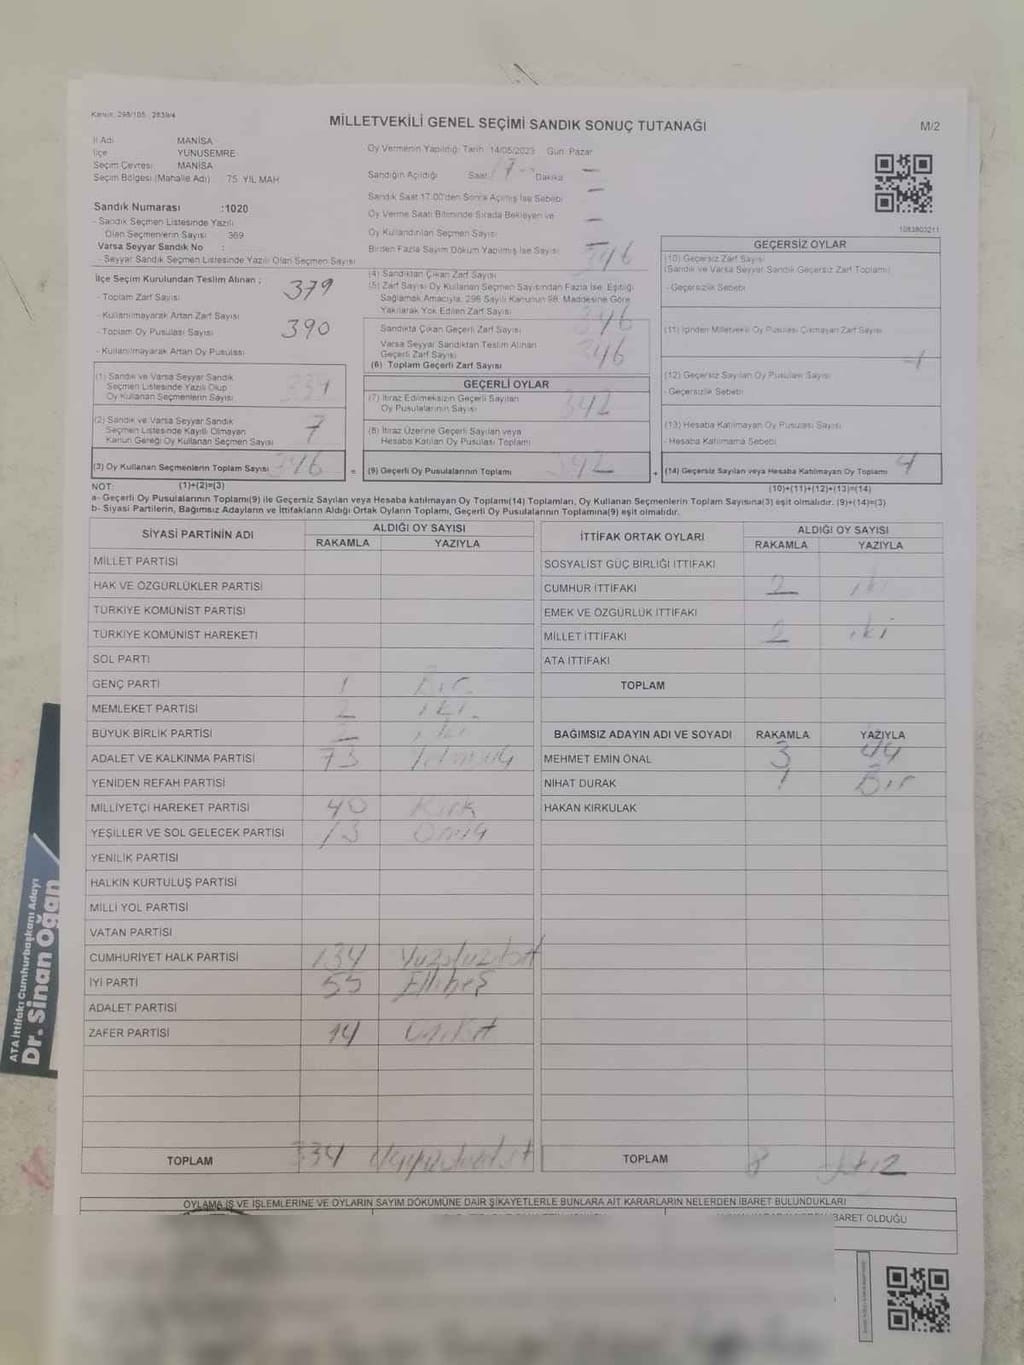 Kanun: 298/105 : 2839/4
MİLLETVEKİLİ GENEL SEÇİMİ SANDIK SONUÇ TUTANAĞI
M/2
İl Adı MANİSA
İlçe YUNUSEMRE
Seçim Çevresi MANİSA
Seçim Bölgesi (Mahalle Adı) 75. YIL MAH
Sandık Numarası :1020
- Sandık Seçmen Listesinde Yazılı
Olan Seçmenlerin Sayısı 369
Varsa Seyyar Sandık No :
- Seyyar Sandık Seçmen Listesinde Yazılı Olan Seçmen Sayısı
Oy Vermenin Yapıldığı Tarih 14/05/2023 Gün: Pazar
Sandığın Açıldığı Saat 17 Dakika
Sandık Saat 17.00'den Sonra Açılmış İse Sebebi
Oy Verme Saati Bitiminde Sırada Bekleyen ve
Oy Kullandırılan Seçmen Sayısı
Birden Fazla Sayım Döküm Yapılmış İse Sayısı
1083803211
İlçe Seçim Kurulundan Teslim Alınan ;
- Toplam Zarf Sayısı 379
- Kullanılmayarak Artan Zarf Sayısı
- Toplam Oy Pusulası Sayısı 390
- Kullanılmayarak Artan Oy Pusulası
(1) Sandık ve Varsa Seyyar Sandık
Seçmen Listesinde Yazılı Olup
Oy Kullanan Seçmenlerin Sayısı 339
(2) Sandık ve Varsa Seyyar Sandık
Seçmen Listesinde Kayıtlı Olmayan
Kanun Gereği Oy Kullanan Seçmen Sayısı 7
(3) Oy Kullanan Seçmenlerin Toplam Sayısı 346
(4) Sandıktan Çıkan Zarf Sayısı 346
(5) Zarf Sayısı Oy Kullanan Seçmen Sayısından Fazla İse, Eşitliği
Sağlamak Amacıyla, 298 Sayılı Kanunun 98. Maddesine Göre
Yakılarak Yok Edilen Zarf Sayısı
Sandıkta Çıkan Geçerli Zarf Sayısı 346
Varsa Seyyar Sandıktan Teslim Alınan
Geçerli Zarf Sayısı
(6) Toplam Geçerli Zarf Sayısı 346
GEÇERLİ OYLAR
(7) İtiraz Edilmeksizin Geçerli Sayılan
Oy Pusulalarının Sayısı 342
(8) İtiraz Üzerine Geçerli Sayılan veya
Hesaba Katılan Oy Pusulası Toplamı
= (9) Geçerli Oy Pusulalarının Toplamı 342
GEÇERSİZ OYLAR
(10) Geçersiz Zarf Sayısı
(Sandık ve Varsa Seyyar Sandık Geçersiz Zarf Toplamı)
- Geçersizlik Sebebi
(11) İçinden Milletvekili Oy Pusulası Çıkmayan Zarf Sayısı
(12) Geçersiz Sayılan Oy Pusulası Sayısı
- Geçersizlik Sebebi
(13) Hesaba Katılmayan Oy Pusulası Sayısı
- Hesaba Katılmama Sebebi
+ (14) Geçersiz Sayılan veya Hesaba Katılmayan Oy Toplamı 4
NOT: (1)+(2)=(3) (10)+(11)+(12)+(13)=(14)
a- Geçerli Oy Pusulalarının Toplamı(9) ile Geçersiz Sayılan veya Hesaba katılmayan Oy Toplamı(14) Toplamları, Oy Kullanan Seçmenlerin Toplam Sayısına(3) eşit olmalıdır. (9)+(14)=(3)
b- Siyasi Partilerin, Bağımsız Adayların ve İttifakların Aldığı Ortak Oyların Toplamı, Geçerli Oy Pusulalarının Toplamına(9) eşit olmalıdır.
SİYASİ PARTİNİN ADI ALDIĞI OY SAYISI
RAKAMLA YAZIYLA
MİLLET PARTİSİ
HAK VE ÖZGÜRLÜKLER PARTİSİ
TÜRKİYE KOMÜNİST PARTİSİ
TÜRKİYE KOMÜNİST HAREKETİ
SOL PARTİ
GENÇ PARTİ 1 Bir
MEMLEKET PARTİSİ 2 iki
BÜYÜK BİRLİK PARTİSİ 2 iki
ADALET VE KALKINMA PARTİSİ 73
YENİDEN REFAH PARTİSİ
MİLLİYETÇİ HAREKET PARTİSİ 40 Kırk
YEŞİLLER VE SOL GELECEK PARTİSİ 13 Onüç
YENİLİK PARTİSİ
HALKIN KURTULUŞ PARTİSİ
MİLLİ YOL PARTİSİ
VATAN PARTİSİ
CUMHURİYET HALK PARTİSİ 134
İYİ PARTİ 55 Ellibeş
ADALET PARTİSİ
ZAFER PARTİSİ 14
TOPLAM 334
İTTİFAK ORTAK OYLARI ALDIĞI OY SAYISI
RAKAMLA YAZIYLA
SOSYALİST GÜÇ BİRLİĞİ İTTİFAKI
CUMHUR İTTİFAKI 2 iki
EMEK VE ÖZGÜRLÜK İTTİFAKI
MİLLET İTTİFAKI 2 iki
ATA İTTİFAKI
TOPLAM
BAĞIMSIZ ADAYIN ADI VE SOYADI RAKAMLA YAZIYLA
MEHMET EMİN ÖNAL 3 üç
NİHAT DURAK 1 Bir
HAKAN KIRKULAK
TOPLAM 8 sekiz
OYLAMA İŞ VE İŞLEMLERİNE VE OYLARIN SAYIM DÖKÜMÜNE DAİR ŞİKAYETLERLE BUNLARA AİT KARARLARIN NELERDEN İBARET BULUNDUKLARI
BARET OLDUĞU
ATA İttifakı Cumhurbaşkanı Adayı
Dr. Sinan Oğan